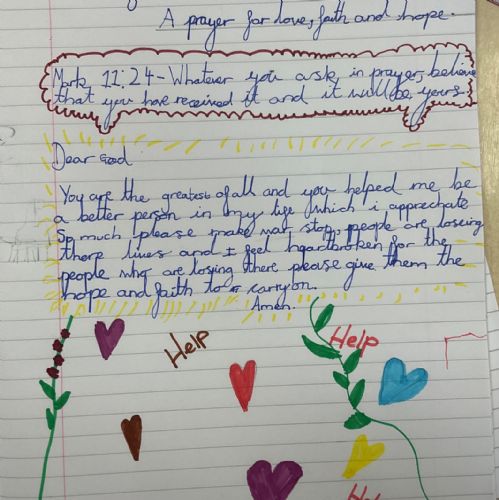 A prayer for love, faith and hope.
Mark 11:24 - Whatever you ask in prayer, believe
that you have received it and it will be yours
Dear God
You are the greatest of all and you helped me be
a better person in my life which i apprechate
so much please make war stop people are loseing
there lives and I feel heartbroken for the
people who are losying there please give them the
hope and faith to carry on.
Amen.
Help
Help
Help